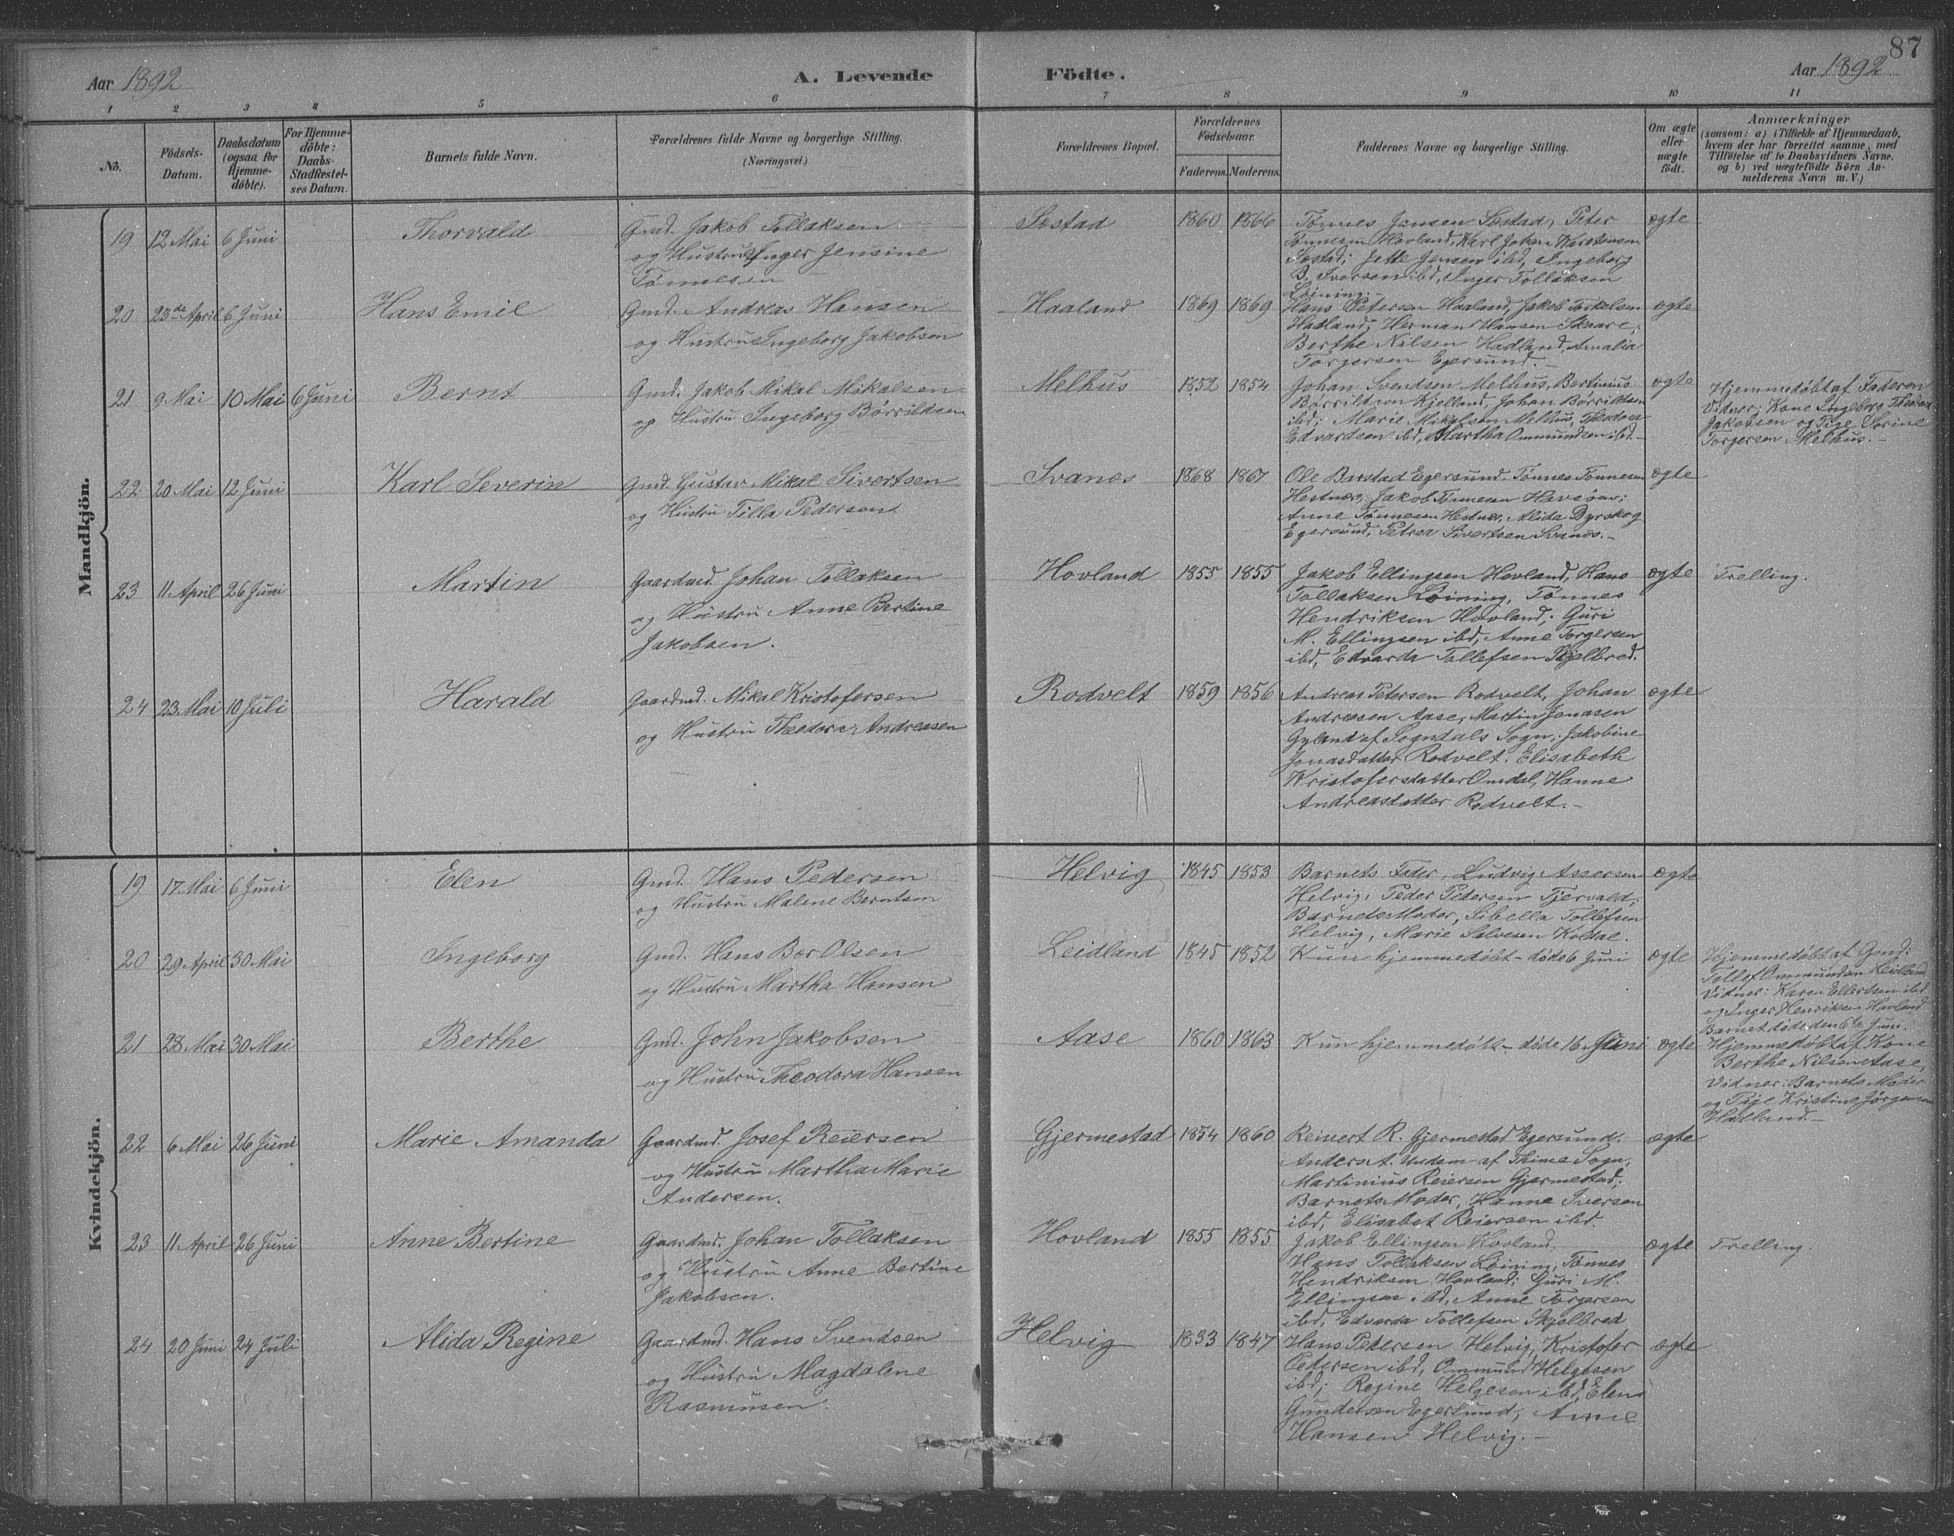 87
Aar 1892
A. Levende
Födte.
Aar 1892
1 2 3 4 5 6 7 8 9 10 11
No.
Födsels-Datum.
Daabsdatum (ogsaa for Hjemmedöbte).
For Hjemmedöbte: Daabs-Stadfæstelses Datum.
Barnets fulde Navn.
Forældrenes fulde Navne og borgerlige Stilling.
(Næringsvei.)
Forældrenes Bopæl.
Forældrenes Födselsaar.
Faderens. Moderens.
Faddernes Navne og borgerlige Stilling.
Om ægte eller uægte födt.
Anmærkninger
(saasom: a) i Tilfælde af Hjemmedaab,
hvem der har forrettet samme, med
Tilföielse af to Daabsvidners Navne,
og b) ved uægtefödte Börn An-
melderens Navn m. V.)
Mandkjön.
19 12 Mai 6 Juni Thorvald Gmd. Jakob Tollaksen Sostad 1860 1866 Tønnes Jensen Sostad, Peter ægte
og Hustru Inger Jensine Tønnesen Hovland, Karl Johan Karstensen
Tønnesen Sostad; Jette Jensen ibd, Ingeborg
B. Iversen ibd, Inger Tollaksen
Løining.-
20 23de April 6 Juni Hans Emil Gmd. Andreas Hansen Haaland 1869 1869 Hans Petersen Haaland, Jakob Torkelsen ægte
og Hustru Ingeborg Jakobsen Hadland; Herman Hansen Skaare,
Berthe Nilsen Hadland, Amalia
Torgersen Egersund.-
21 9 Mai 10 Mai 6 Juni Bernt Gmd. Jakob Mikal Mikalsen Melhus 1852 1854 Johan Svendsen Melhus, Bertinius ægte Hjemmedøbt af Faderen
og Hustru Ingeborg Børrildsen Børrildsen Kjelland, Johan Børrildsen Vidner: Kone Ingeborg Theodora
ibd; Marie Mikalsen Melhus, Theodora Jakobsen og Pige Serine
Edvardsen ibd, Martha Ommundsen ibd.- Torgersen Melhus.-
22 20 Mai 12 Juni Karl Severin Gmd. Gustav Mikal Sivertsen Svanes 1868 1867 Ole Barstad Egersund, Tønnes Tønnesen ægte
og Hustru Tilla Pedersen Hestnes, Jakob Tønnesen Havsøen;
Anne Tønnesen Hestnes, Alida Dyrskog
Egersund, Petrea Sivertsen Svanes.-
23 11 April 26 Juni Martin Gaardmd. Johan Tollaksen Hovland 1855 1855 Jakob Ellingsen Hovland, Hans ægte Trelling.
og Hustru Anne Bertine Tollaksen Løining, Tønnes
Jakobsen. Hendriksen Hovland; Guri
M. Ellingsen ibd, Anne Torgersen
ibd, Edvarda Tollefsen Skjelbred.
24 23 Mai 10 Juli Harald Gaardmd. Mikal Kristofersen Rodvelt 1859 1856 Andreas Petersen Rodvelt, Johan ægte
og Hustru Theodora Andreassen Andreasen Aase, Martin Jonasen
Gyland af Sogndals Sogn; Jakobine
Jonasdatter Rodvelt. Elisabeth
Kristofersdatter Omdal, Hanne
Andreasdatter Rodvelt.-
Kvindekjön.
19 17 Mai 6 Juni Elen Gmd. Hans Pedersen Helvig 1845 1853 Barnets Fader, Ludvig Assersen ægte
og Hustru Malene Berntsen Helvig, Peder Pedersen Tjervald;
Barnets Moder, Sibella Tollefsen
Helvig, Marie Salvesen Koldal.
20 29 April 30 Mai Ingeborg Gmd. Hans Ber Olsen Leidland 1845 1852 Kun hjemmedøbt- døde 6 Juni ægte Hjemmedøbt af Gmd:
og Hustru Martha Hansen Tollef Ommundsen Leidland
Vidner: Karen Ellertsen ibd
og Inger Henriksen Hovland
Barnet døde den 6te Juni.
21 28 Mai 30 Mai Berthe Gmd. John Jakobsen Aase 1860 1863 Kun hjemmedøbt- døde 16 Juni ægte Hjemmedøbt af Kone
og Hustru Theodora Hansen Berthe Nilsen Aase,
Vidner: Barnets Moder
og Pige Kristine Jørgensen
Hadland.-
22 6 Mai 26 Juni Marie Amanda Gaardmd. Josef Reiersen Gjermestad 1854 1860 Reinert R. Gjermestad Egersund. ægte
og Hustru Martha Marie Anders A. Undem af Thime Sogn,
Andersen. Martinius Reiersen Gjermestad;
Barnets Moder, Hanne Iversen
ibd, Elisabet Reiersen ibd.
23 11 April 26 Juni Anne Bertine Gaardmd. Johan Tollaksen Hovland 1855 1855 Jakob Ellingsen Hovland, ægte Trelling.
og Hustru Anne Bertine Hans Tollaksen Løining, Tønnes
Jakobsen. Hendriksen Hovland; Guri M.
Ellingsen ibd, Anne Torgersen
ibd, Edvarda Tollefsen Skjelbred
24 20 Juni 24 Juli Alida Regine Gaardmd. Hans Svendsen Helvig 1833 1847 Hans Petersen Helvig, Kristofer ægte
og Hustru Magdalene Pedersen ibd, Ommund Helgesen
Rasmussen. ibd; Regine Helgesen ibd, Elen
Gundersen Egersund, Anne
Hansen Helvig.-